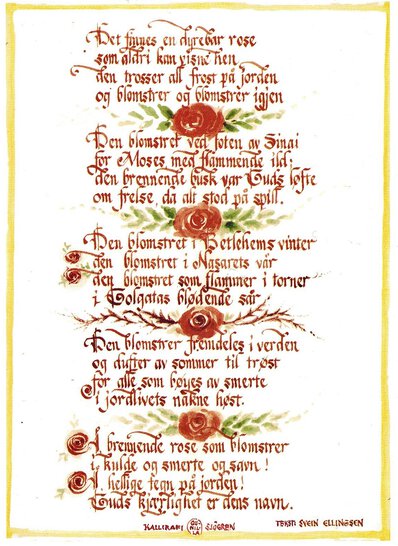 Det finnes en dyrebar rose
som aldri kan visne hen
den trosser all frost på jorden
og blomstrer og blomstrer igjen
Den blomstret ved foten av Sinai
for Moses med flammende ild;
den brennende busk var Guds løfte
om frelse, da alt stod på spill.
Den blomstret i Betlehems vinter
den blomstret i Nasarets vår
den blomstret som flammer i torner
i Golgatas blødende sår
Den blomstrer fremdeles i verden
og dufter av sommer til trøst
for alle som bøyes av smerte
i jordlivets nakne høst.
Å brennende rose som blomstrer
i kulde og smerte og savn!
Å, hellige tegn på jorden!
Guds kjærlighet er dens navn.
KALLIGRAFI GUNILLA SJÖGREN TEKST: SVEIN ELLINGSEN